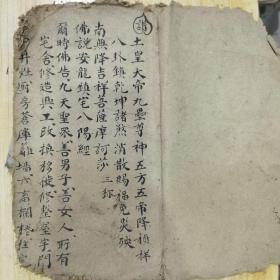 讚
土皇大帝九壘尊神五方五帝降禎祥
八卦鎮乾坤諸煞消散賜福免災殃
南無降吉祥菩薩摩訶薩 三稱
佛說安龍鎮宅八陽經
爾時佛告九天聖眾善男子善女人所有
宅舍修造興工改換移徙修整屋宇門
井灶廚房倉庫籬墻六畜欄棧住宅